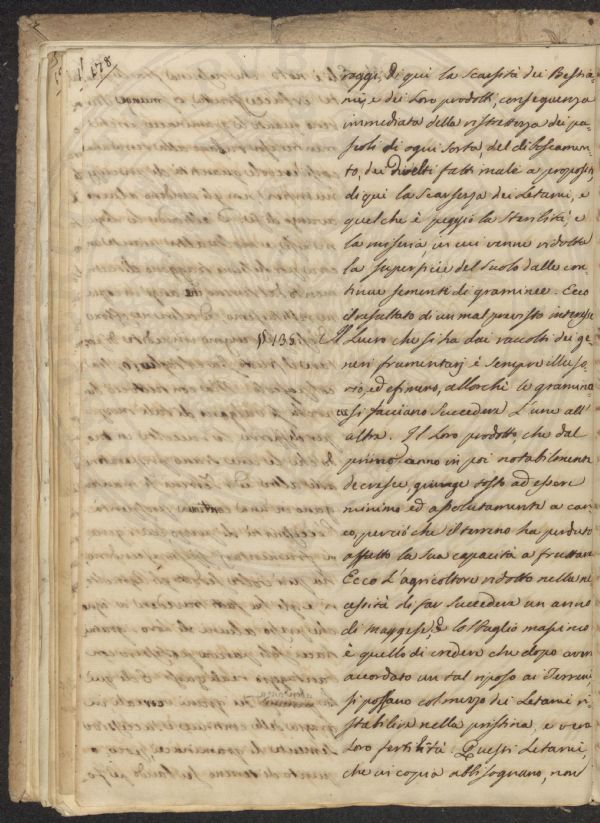 178
raggi, di qui la scarsità dei Bestia-
mi, e dei loro prodotti, conseguenza
immediata della ristrettezza dei pa-
scoli di ogni sorta, del disboscamen-
to, dei divelti fatti male a proposito,
di qui la scarsezza dei Letami, e
quel che è peggio la sterilità, e
la miseria, in cui venne ridotta
la superficie del suolo dalle con-
tinue sementi di graminee. Ecco
il resultato di un mal previsto interesse
§ 135. Il Lucro che si ha dai raccolti dei ge-
neri frumentarj è sempre illuso-
rio, ed efimero, allorchè le gramina-
cee si facciano succedere l'une all'
altre. Il loro prodotto, che dal
primo anno in poi notabilmente
decresce, giunge tosto ad essere
minimo ed assolutamente a cari-
co, perciò che il terreno ha perduto
affatto la sua capacità a fruttare
Ecco l'agricoltore ridotto nella ne-
cessità di far succedere un anno
di maggese, e lo sbaglio massimo
è quello di credere che dopo aver
accordato un tal riposo ai Terreni,
si possano col mezzo dei Letami ri-
stabilire nella pristina, e vera
loro fertilità. Questi Letami,
che in copia abbisognano, non